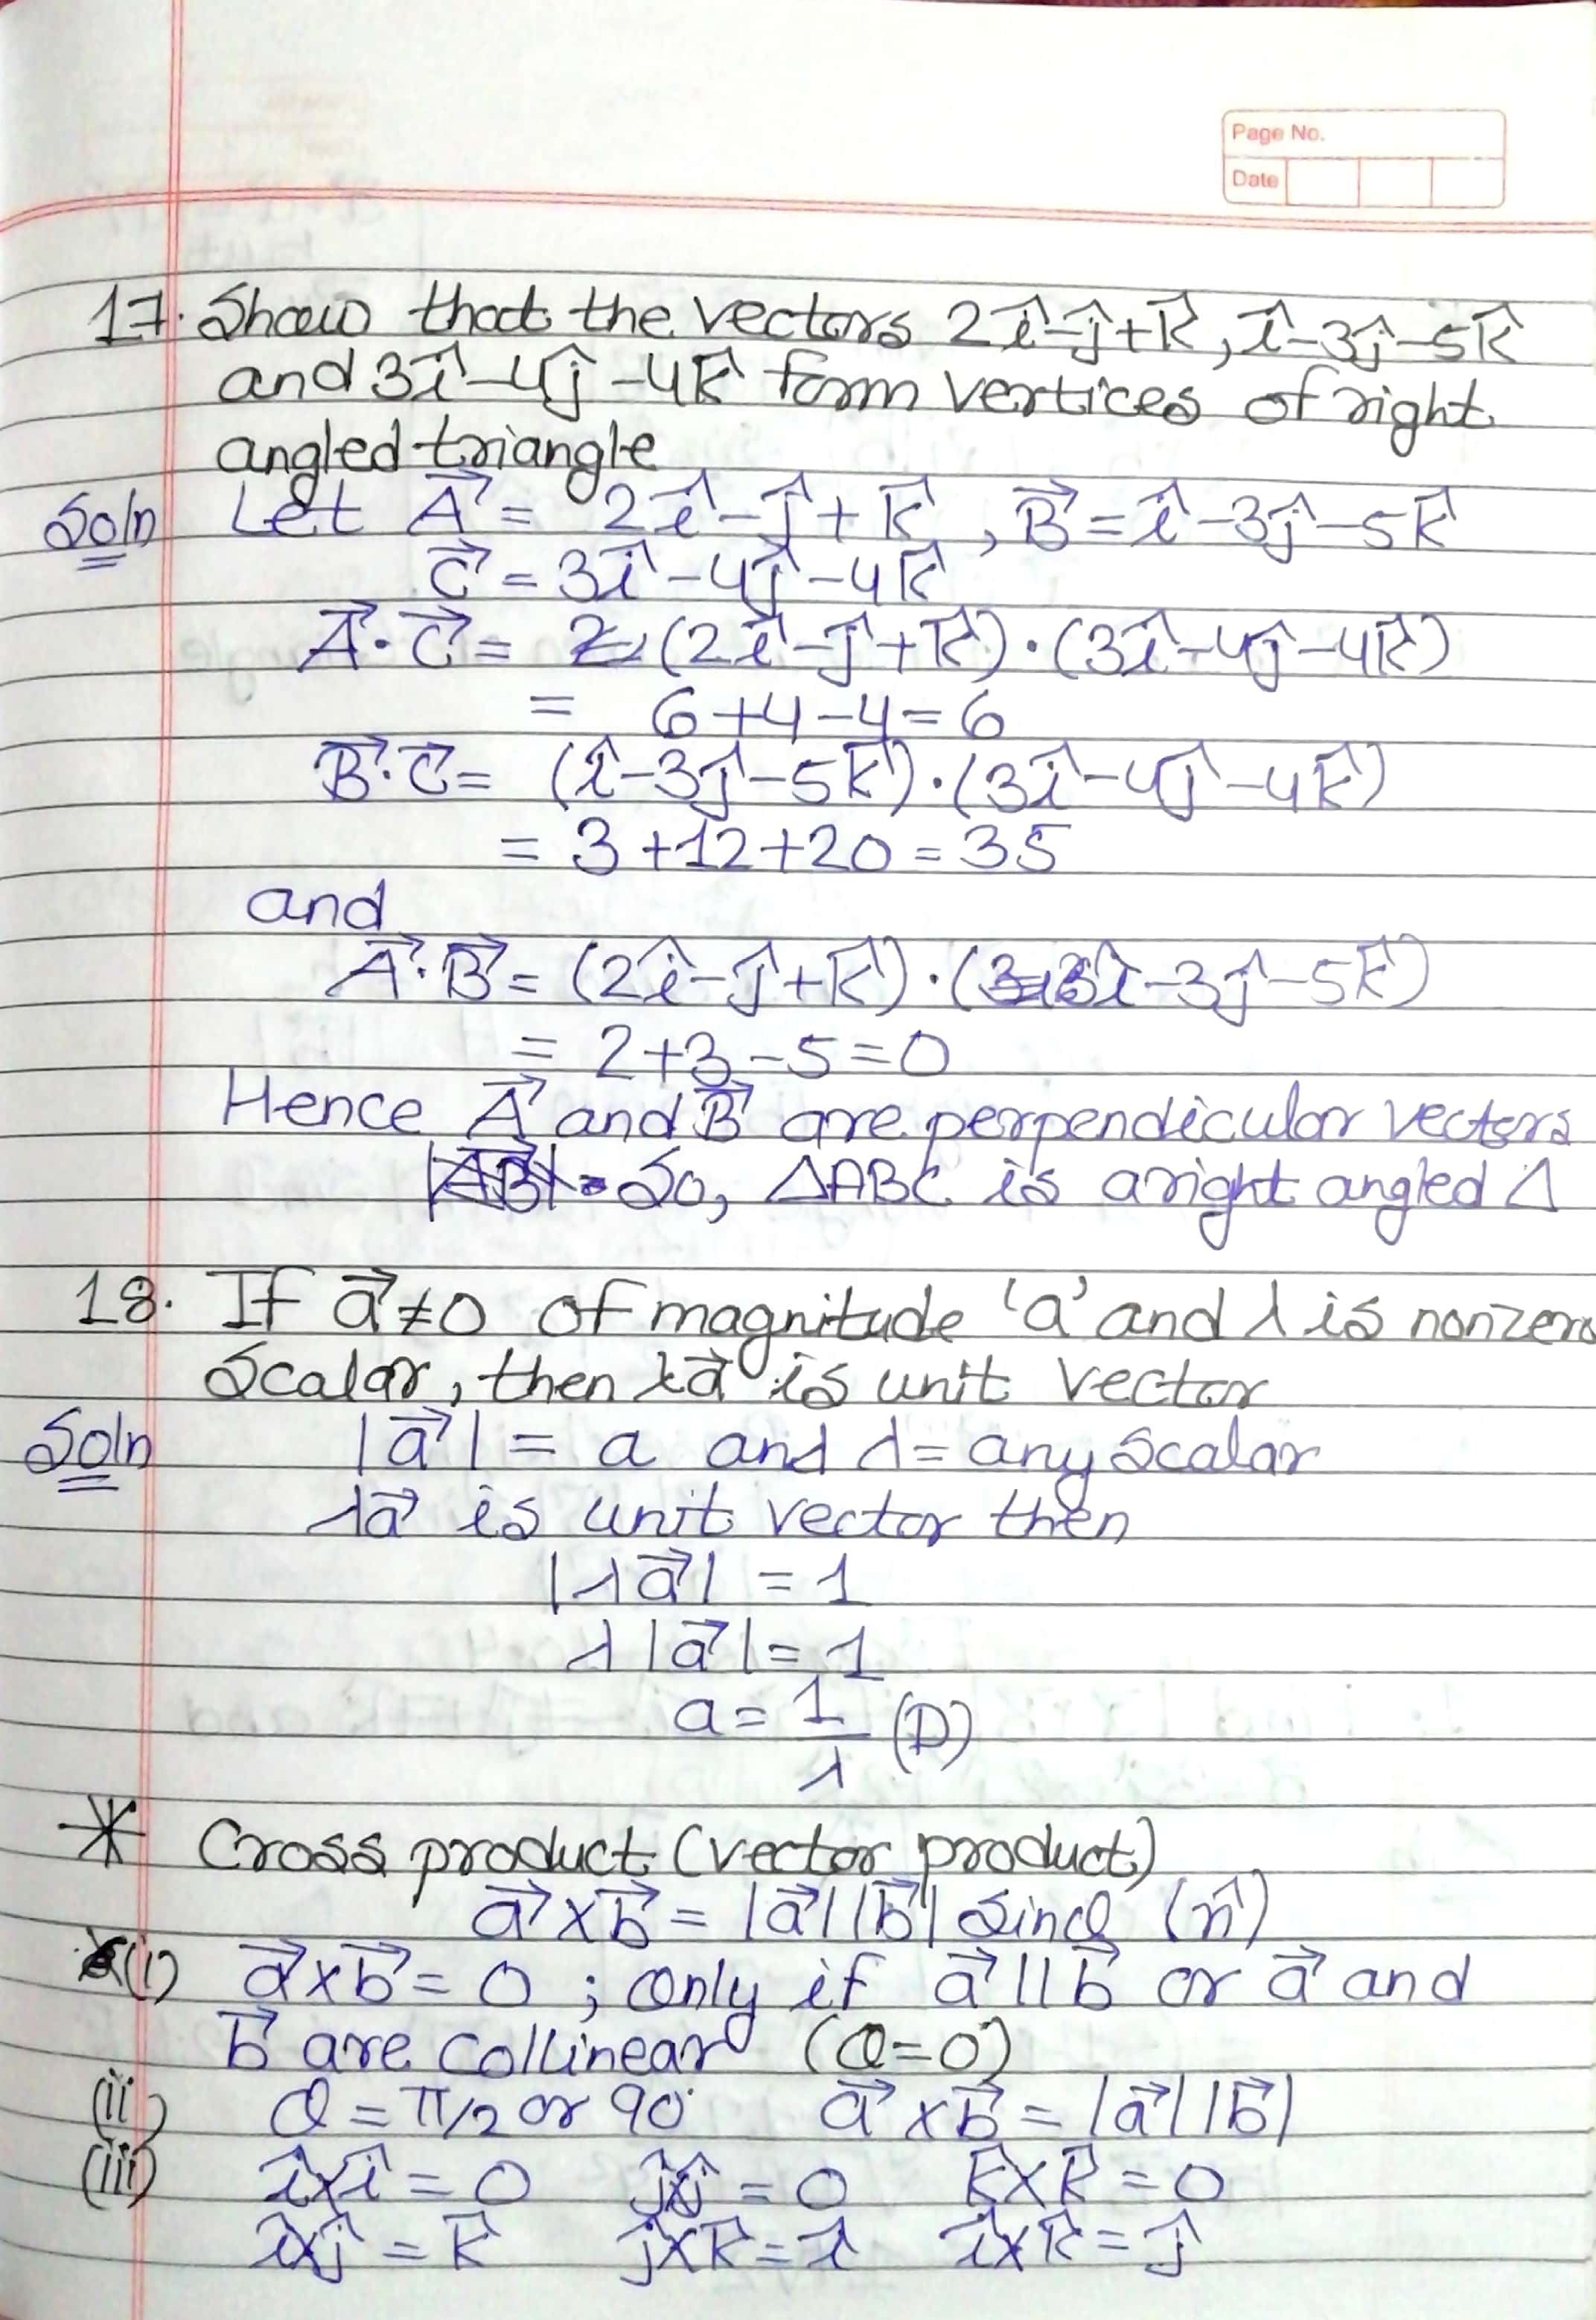 Page No.
Date
17. Show that the vectors 2î-ĵ+k̂, î-3ĵ-5k̂
and 3î-4ĵ-4k̂ form vertices of right
angled triangle
Soln Let A⃗ = 2î-ĵ+k̂, B⃗=î-3ĵ-5k̂
C⃗ = 3î-4ĵ-4k̂
A⃗·C⃗ = (2î-ĵ+k̂)·(3î-4ĵ-4k̂)
= 6+4-4=6
B⃗·C⃗= (î-3ĵ-5k̂)·(3î-4ĵ-4k̂)
= 3+12+20=35
and
A⃗·B⃗= (2î-ĵ+k̂)·(î-3ĵ-5k̂)
= 2+3-5=0
Hence A⃗ and B⃗ are perpendicular vectors
So, △ABC is a right angled △
18. If a⃗≠0 of magnitude 'a' and λ is nonzero
Scalar, then λa⃗ is unit vector
Soln |a⃗| = a and λ= any scalar
λa⃗ is unit vector then
|λa⃗| = 1
λ|a⃗|=1
a=1/λ (D)
* Cross product (vector product)
a⃗×b⃗= |a⃗||b⃗| sinθ (n̂)
(i) a⃗×b⃗= 0 ; only if a⃗||b⃗ or a⃗ and
b⃗ are collinear (θ=0)
(ii) θ=π/2 or 90° a⃗×b⃗=|a⃗||b⃗|
(iii) î×î=0 ĵ×ĵ=0 k̂×k̂=0
î×ĵ=k̂ ĵ×k̂=î î×k̂=ĵ